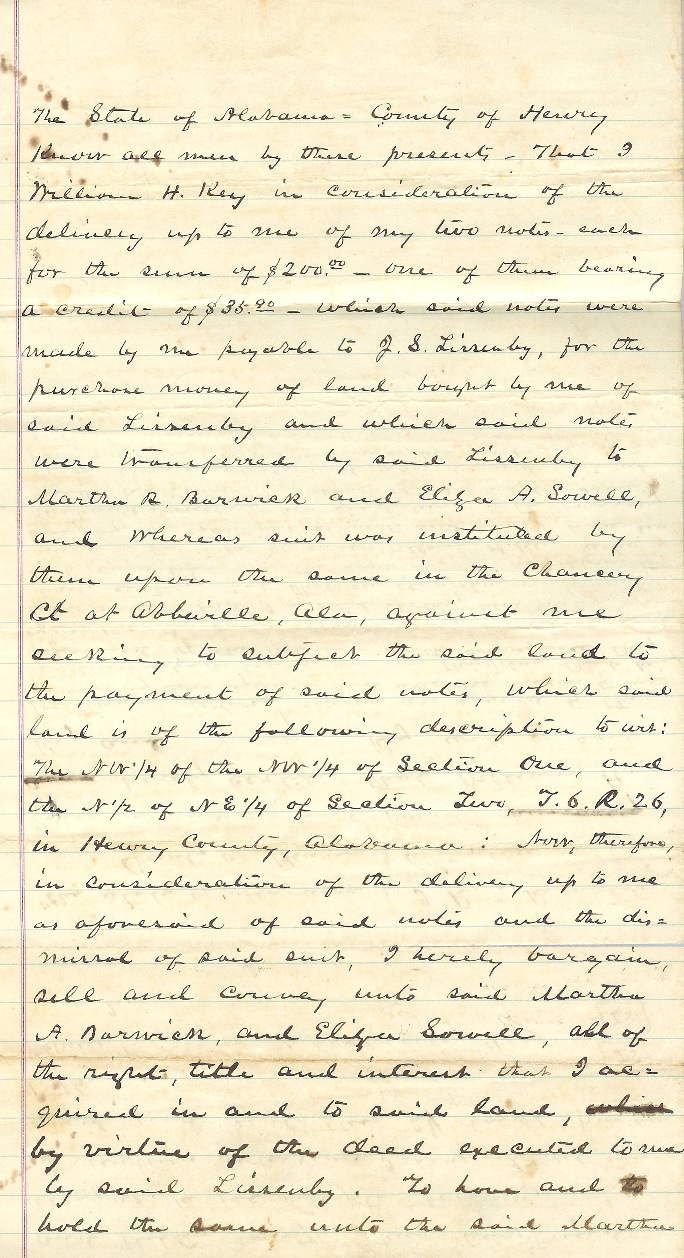 The State of Alabama = County of Henry
Know all men by these presents - That I
William H. Key in consideration of the
delivery up to me of my two notes - each
for the sum of $200.00 - one of them bearing
a credit of $35.90 - which said notes were
made by me payable to J. S. Lissenby, for the
purchase money of land bought by me of
said Lissenby and which said notes
were transferred by said Lissenby to
Martha R. Barwick and Eliza A. Sowell,
and whereas suit was instituted by
them upon the same in the Chancery
Ct at Abbeville, Ala, against me
seeking to subject the said land to
the payment of said notes, which said
land is of the following description to wit:
The NW 1/4 of the NW 1/4 of Section One, and
the N 1/2 of NE 1/4 of Section Two, T. 6. R. 26,
in Henry County, Alabama : Now, therefore,
in consideration of the delivery up to me
as aforesaid of said notes and the dis=
missal of said suit, I hereby bargain,
sell and convey unto said Martha
A. Barwick, and Eliza Sowell, all of
the right, title and interest that I ac=
quired in and to said land,
by virtue of the deed executed to me
by said Lissenby. To have and to
hold the same unto the said Martha